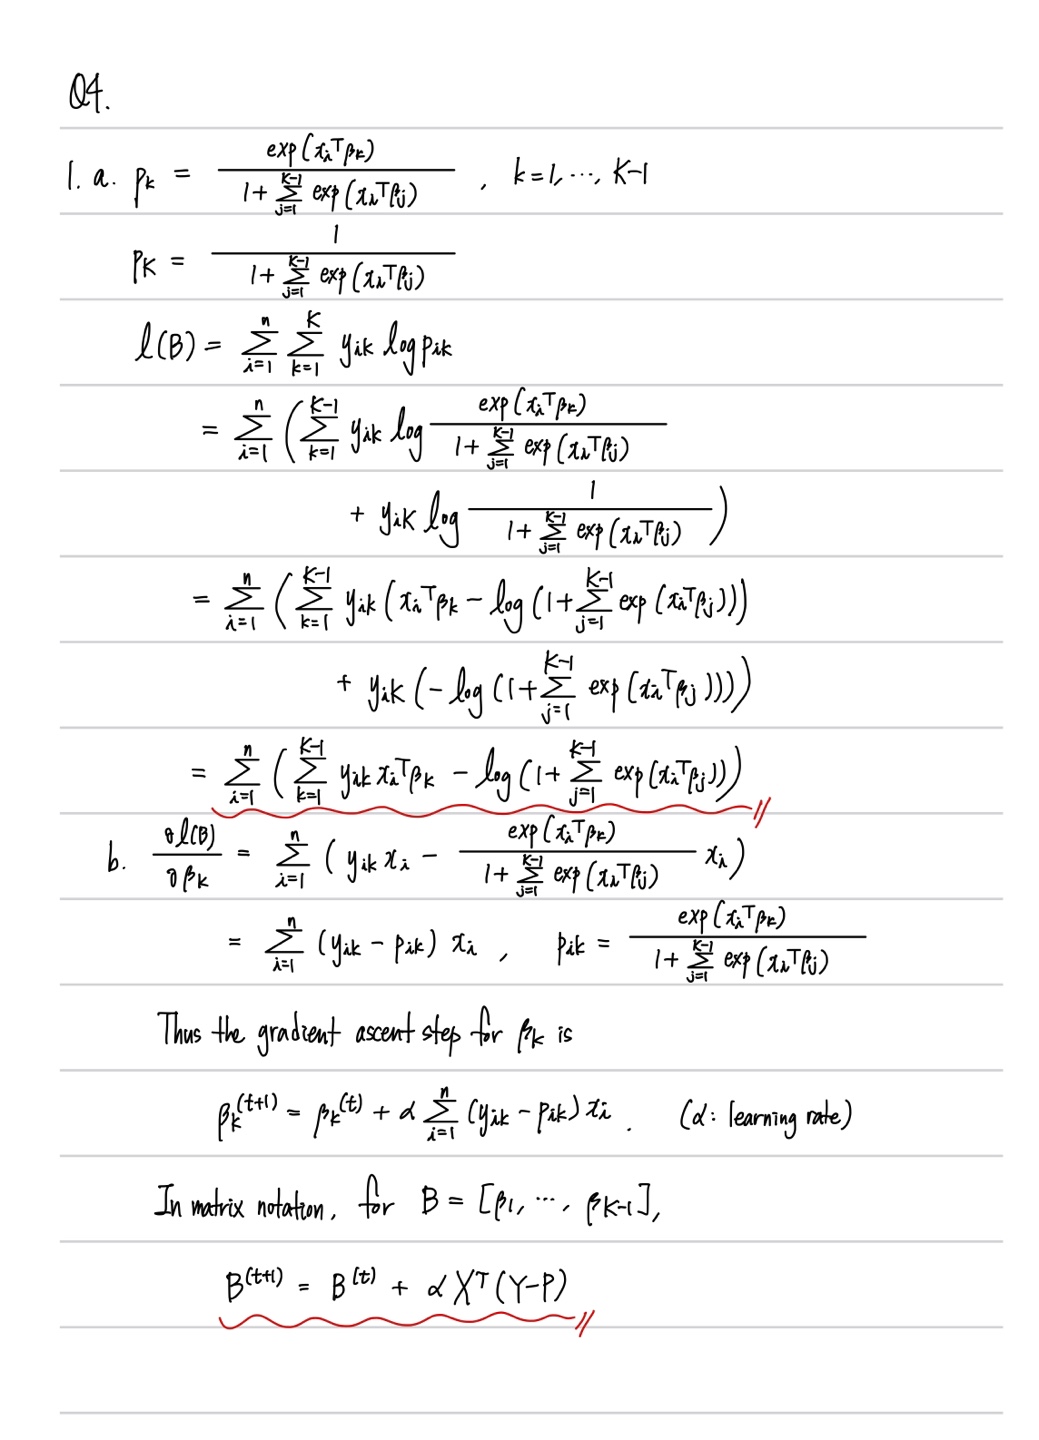 Q4.
1. a. p_k = exp(x_i^T β_k) / (1 + Σ_{j=1}^{K-1} exp(x_i^T β_j)) , k = 1, ···, K-1
p_K = 1 / (1 + Σ_{j=1}^{K-1} exp(x_i^T β_j))
l(B) = Σ_{i=1}^{n} Σ_{k=1}^{K} y_ik log p_ik
= Σ_{i=1}^{n} ( Σ_{k=1}^{K-1} y_ik log exp(x_i^T β_k) / (1 + Σ_{j=1}^{K-1} exp(x_i^T β_j))
+ y_iK log 1 / (1 + Σ_{j=1}^{K-1} exp(x_i^T β_j)) )
= Σ_{i=1}^{n} ( Σ_{k=1}^{K-1} y_ik (x_i^T β_k - log (1 + Σ_{j=1}^{K-1} exp (x_i^T β_j)))
+ y_iK (- log (1 + Σ_{j=1}^{K-1} exp (x_i^T β_j))))
= Σ_{i=1}^{n} ( Σ_{k=1}^{K-1} y_ik x_i^T β_k - log (1 + Σ_{j=1}^{K-1} exp(x_i^T β_j)))
b. ∂l(B)/∂β_k = Σ_{i=1}^{n} ( y_ik x_i - exp(x_i^T β_k) / (1 + Σ_{j=1}^{K-1} exp(x_i^T β_j)) x_i )
= Σ_{i=1}^{n} (y_ik - p_ik) x_i , p_ik = exp(x_i^T β_k) / (1 + Σ_{j=1}^{K-1} exp(x_i^T β_j))
Thus the gradient ascent step for β_k is
β_k^(t+1) = β_k^(t) + α Σ_{i=1}^{n} (y_ik - p_ik) x_i . (α: learning rate)
In matrix notation, for B = [β_1, ···, β_K-1],
B^(t+1) = B^(t) + α X^T (Y-P)